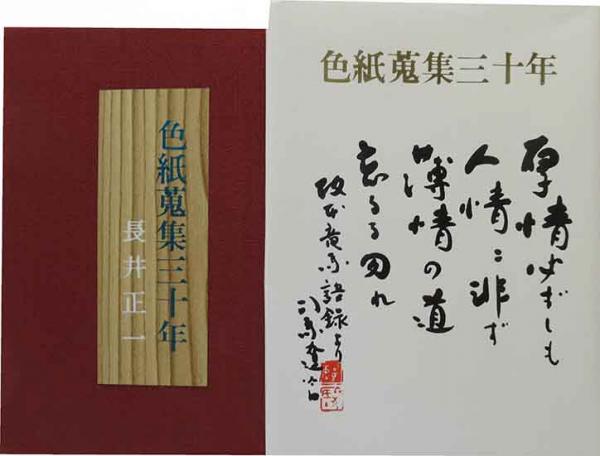 色紙蒐集三十年
長井正一
色紙蒐集三十年
厚情必ずしも
人情ニ非ず
薄情の道
忘るる勿れ
坂本竜馬語録より
司馬遼太郎